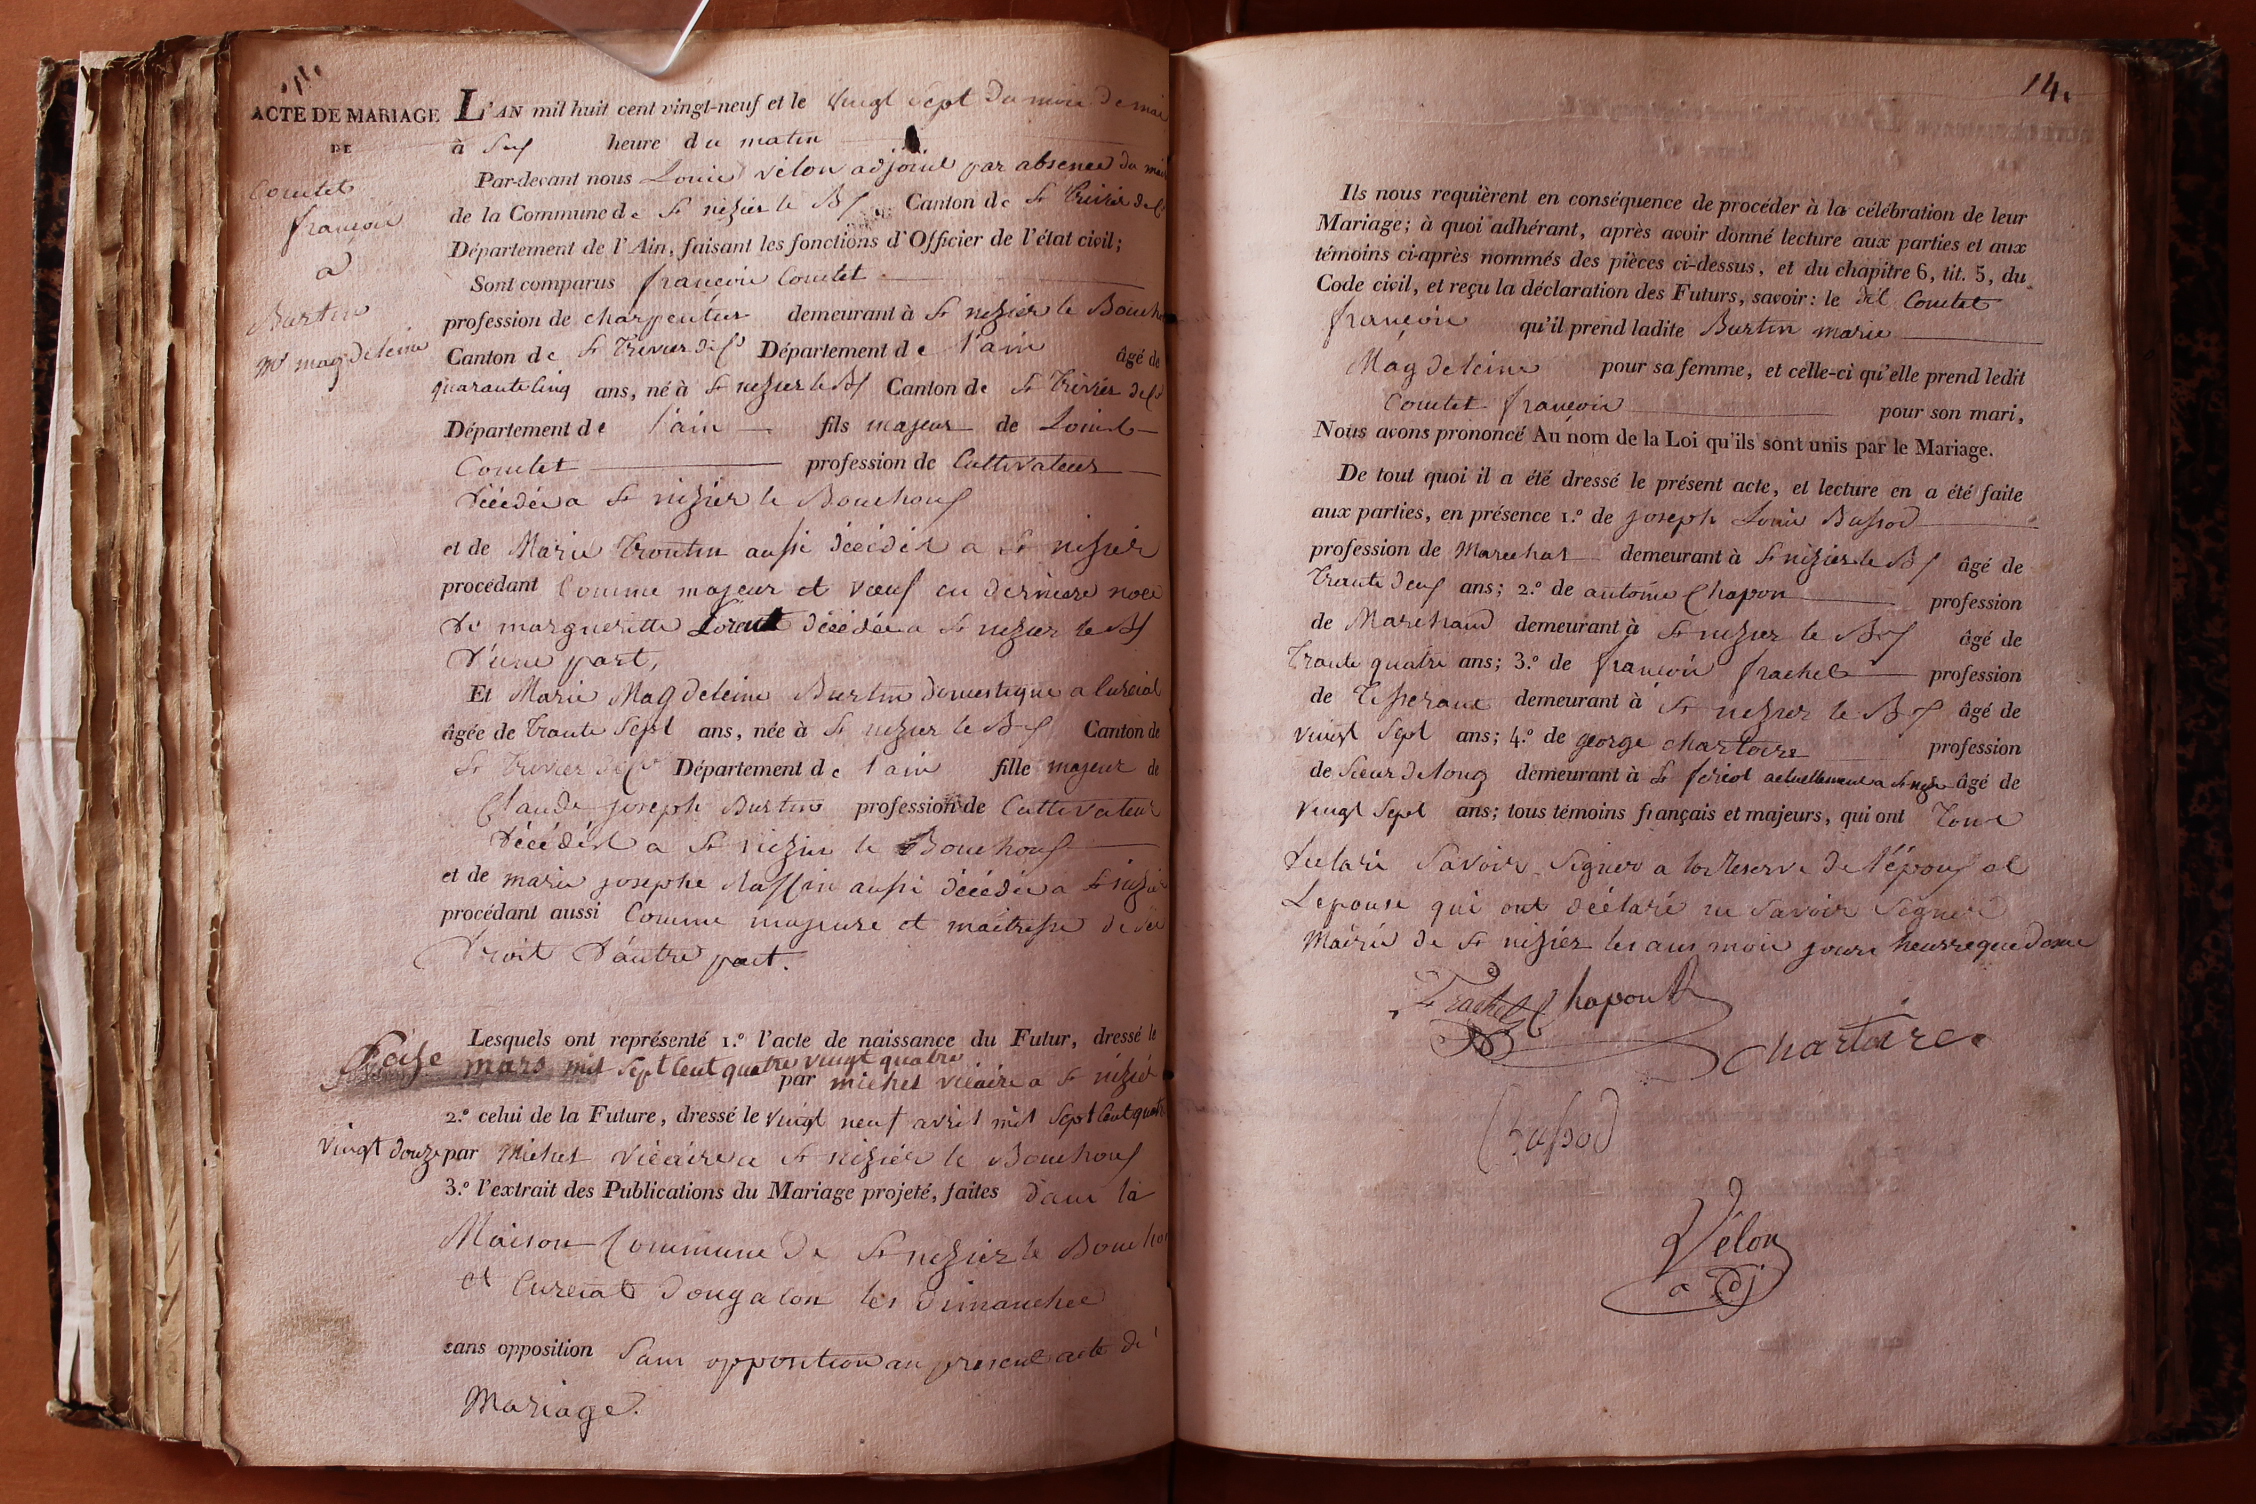 ACTE DE MARIAGE
DE
Coutet
françois
a
Burtin
mie magdeleine
L'AN mil huit cent vingt-neuf et le vingt sept du mois de mai
à six heure du matin
Par-devant nous Louis vélon adjoint par absence du maire
de la Commune de St nizier le Bx Canton de St Trivier de Cs
Département de l'Ain, faisant les fonctions d'Officier de l'état civil;
Sont comparus françois Coutet
profession de charpentier demeurant à St nizier le Bouch
Canton de St Trivier de Cs Département de l'ain âgé de
quarante cinq ans, né à St nizier le Bx Canton de St Trivier de Cs
Département de l'ain fils majeur de Louis
Coutet profession de Cultivateur
décédé a St nizier le Bouchoux
et de Marie Troutin aussi décédée a St nizier
procédant Comme majeur et vœuf en derniere noce
de margueritte décédée a St nizier le Bx
d'une part,
Et Marie Magdeleine Burtin domestique a Curciat
âgée de Trante Sept ans, née à St nizier le Bx Canton de
St Trivier de Cs Département de l'ain fille majeur de
Claude joseph Burtin profession de Cultivateur
décédé a St nizier le Bouchoux
et de marie josephe aussi décédée a St nizier
procédant aussi Comme majeure et maitresse de ses
droit d'autre part.
Lesquels ont représenté 1.º l'acte de naissance du Futur, dressé le
mars mil Sept Cent quatre vingt quatre
par michel vicaire a St nizier
2.º celui de la Future, dressé le vingt neuf avril mil Sept Cent quatre
vingt douze par Michel vicaire a St nizier le Bouchoux
3.º l'extrait des Publications du Mariage projeté, faites dans la
Maison Commune de St nizier le Bouchou
et Curciat dongalon les dimanches
sans opposition Sans opposition au present acte de
Mariage.
14.
Ils nous requièrent en conséquence de procéder à la célébration de leur
Mariage; à quoi adhérant, après avoir donné lecture aux parties et aux
témoins ci-après nommés des pièces ci-dessus, et du chapitre 6, tit. 5, du
Code civil, et reçu la déclaration des Futurs, savoir: le dit Coutet
françois qu'il prend ladite Burtin marie
Magdeleine pour sa femme, et celle-ci qu'elle prend ledit
Coutet françois pour son mari,
Nous avons prononcé Au nom de la Loi qu'ils sont unis par le Mariage.
De tout quoi il a été dressé le présent acte, et lecture en a été faite
aux parties, en présence 1.º de joseph Louis Bussod
profession de Marechal demeurant à St nizier le Bx âgé de
Trante deux ans; 2.º de antoine Chapon profession
de Marchand demeurant à St nizier le Bx âgé de
Trante quatre ans; 3.º de françois frachet profession
de Tisserant demeurant à St nizier le Bx âgé de
vingt Sept ans; 4.º de george chartoire profession
de Sieur de long demeurant à St feréol actuellement a St nizier âgé de
vingt Sept ans; tous témoins français et majeurs, qui ont Tous
declaré Savoir Signer a la reserve de l'époux et
Lepouse qui ont déclaré ne Savoir Signer
Mairie de St nizier les ans mois jours heurre que dessus
Frachet Chapon
Chartoire
Bussod
Vélon
adj